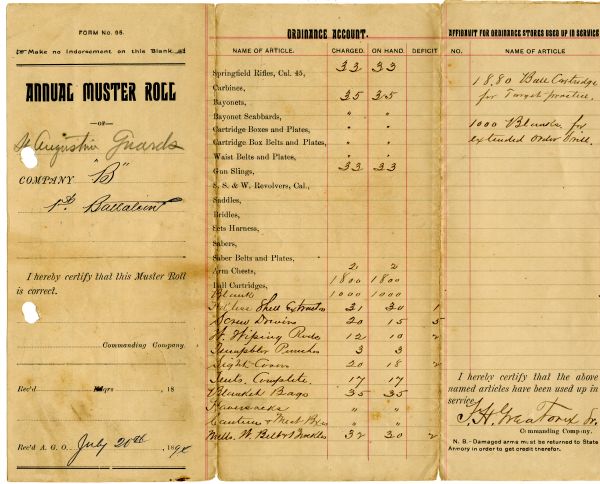 FORM No. 95.
Make no Indorsement on this Blank
ANNUAL MUSTER ROLL
—OF—
St Augustine Guards
COMPANY "B"
1st. Battalion
I hereby certify that this Muster Roll
is correct.
Commanding Company.
Rec'd Hdqrs 18
Rec'd A. G. O. July 20th 189
ORDINANCE ACCOUNT.
NAME OF ARTICLE. CHARGED. ON HAND. DEFICIT
Springfield Rifles, Cal. 45, 33 33
Carbines,
Bayonets, 35 35
Bayonet Scabbards, " "
Cartridge Boxes and Plates, " "
Cartridge Box Belts and Plates, " "
Waist Belts and Plates, " "
Gun Slings, 33 33
S. S. & W. Revolvers, Cal.,
Saddles,
Bridles,
Sets Harness,
Sabers,
Saber Belts and Plates,
Arm Chests, 2 2
Ball Cartridges, 1800 1800
Blank 1000 1000
Shell Extractors 31 30 1
Screw Drivers 20 15 5
Wiping Rods 12 10 2
Punches 3 3
Sight Covers 20 18 2
Tents. Complete. 17 17
Blanket Bags 35 35
Haversacks " "
Canteens & Meat Boxes " "
Mills. W. Belts & Buckles 32 30 2
AFFIDAVIT FOR ORDINANCE STORES USED UP IN SERVICE
NO. NAME OF ARTICLE
1880 Ball Cartridge
for Target practice.
1000 Blanks for
extended order Drill.
I hereby certify that the above
named articles have been used up in
service.
Commanding Company.
N. B.–Damaged arms must be returned to State
Armory in order to get credit therefor.